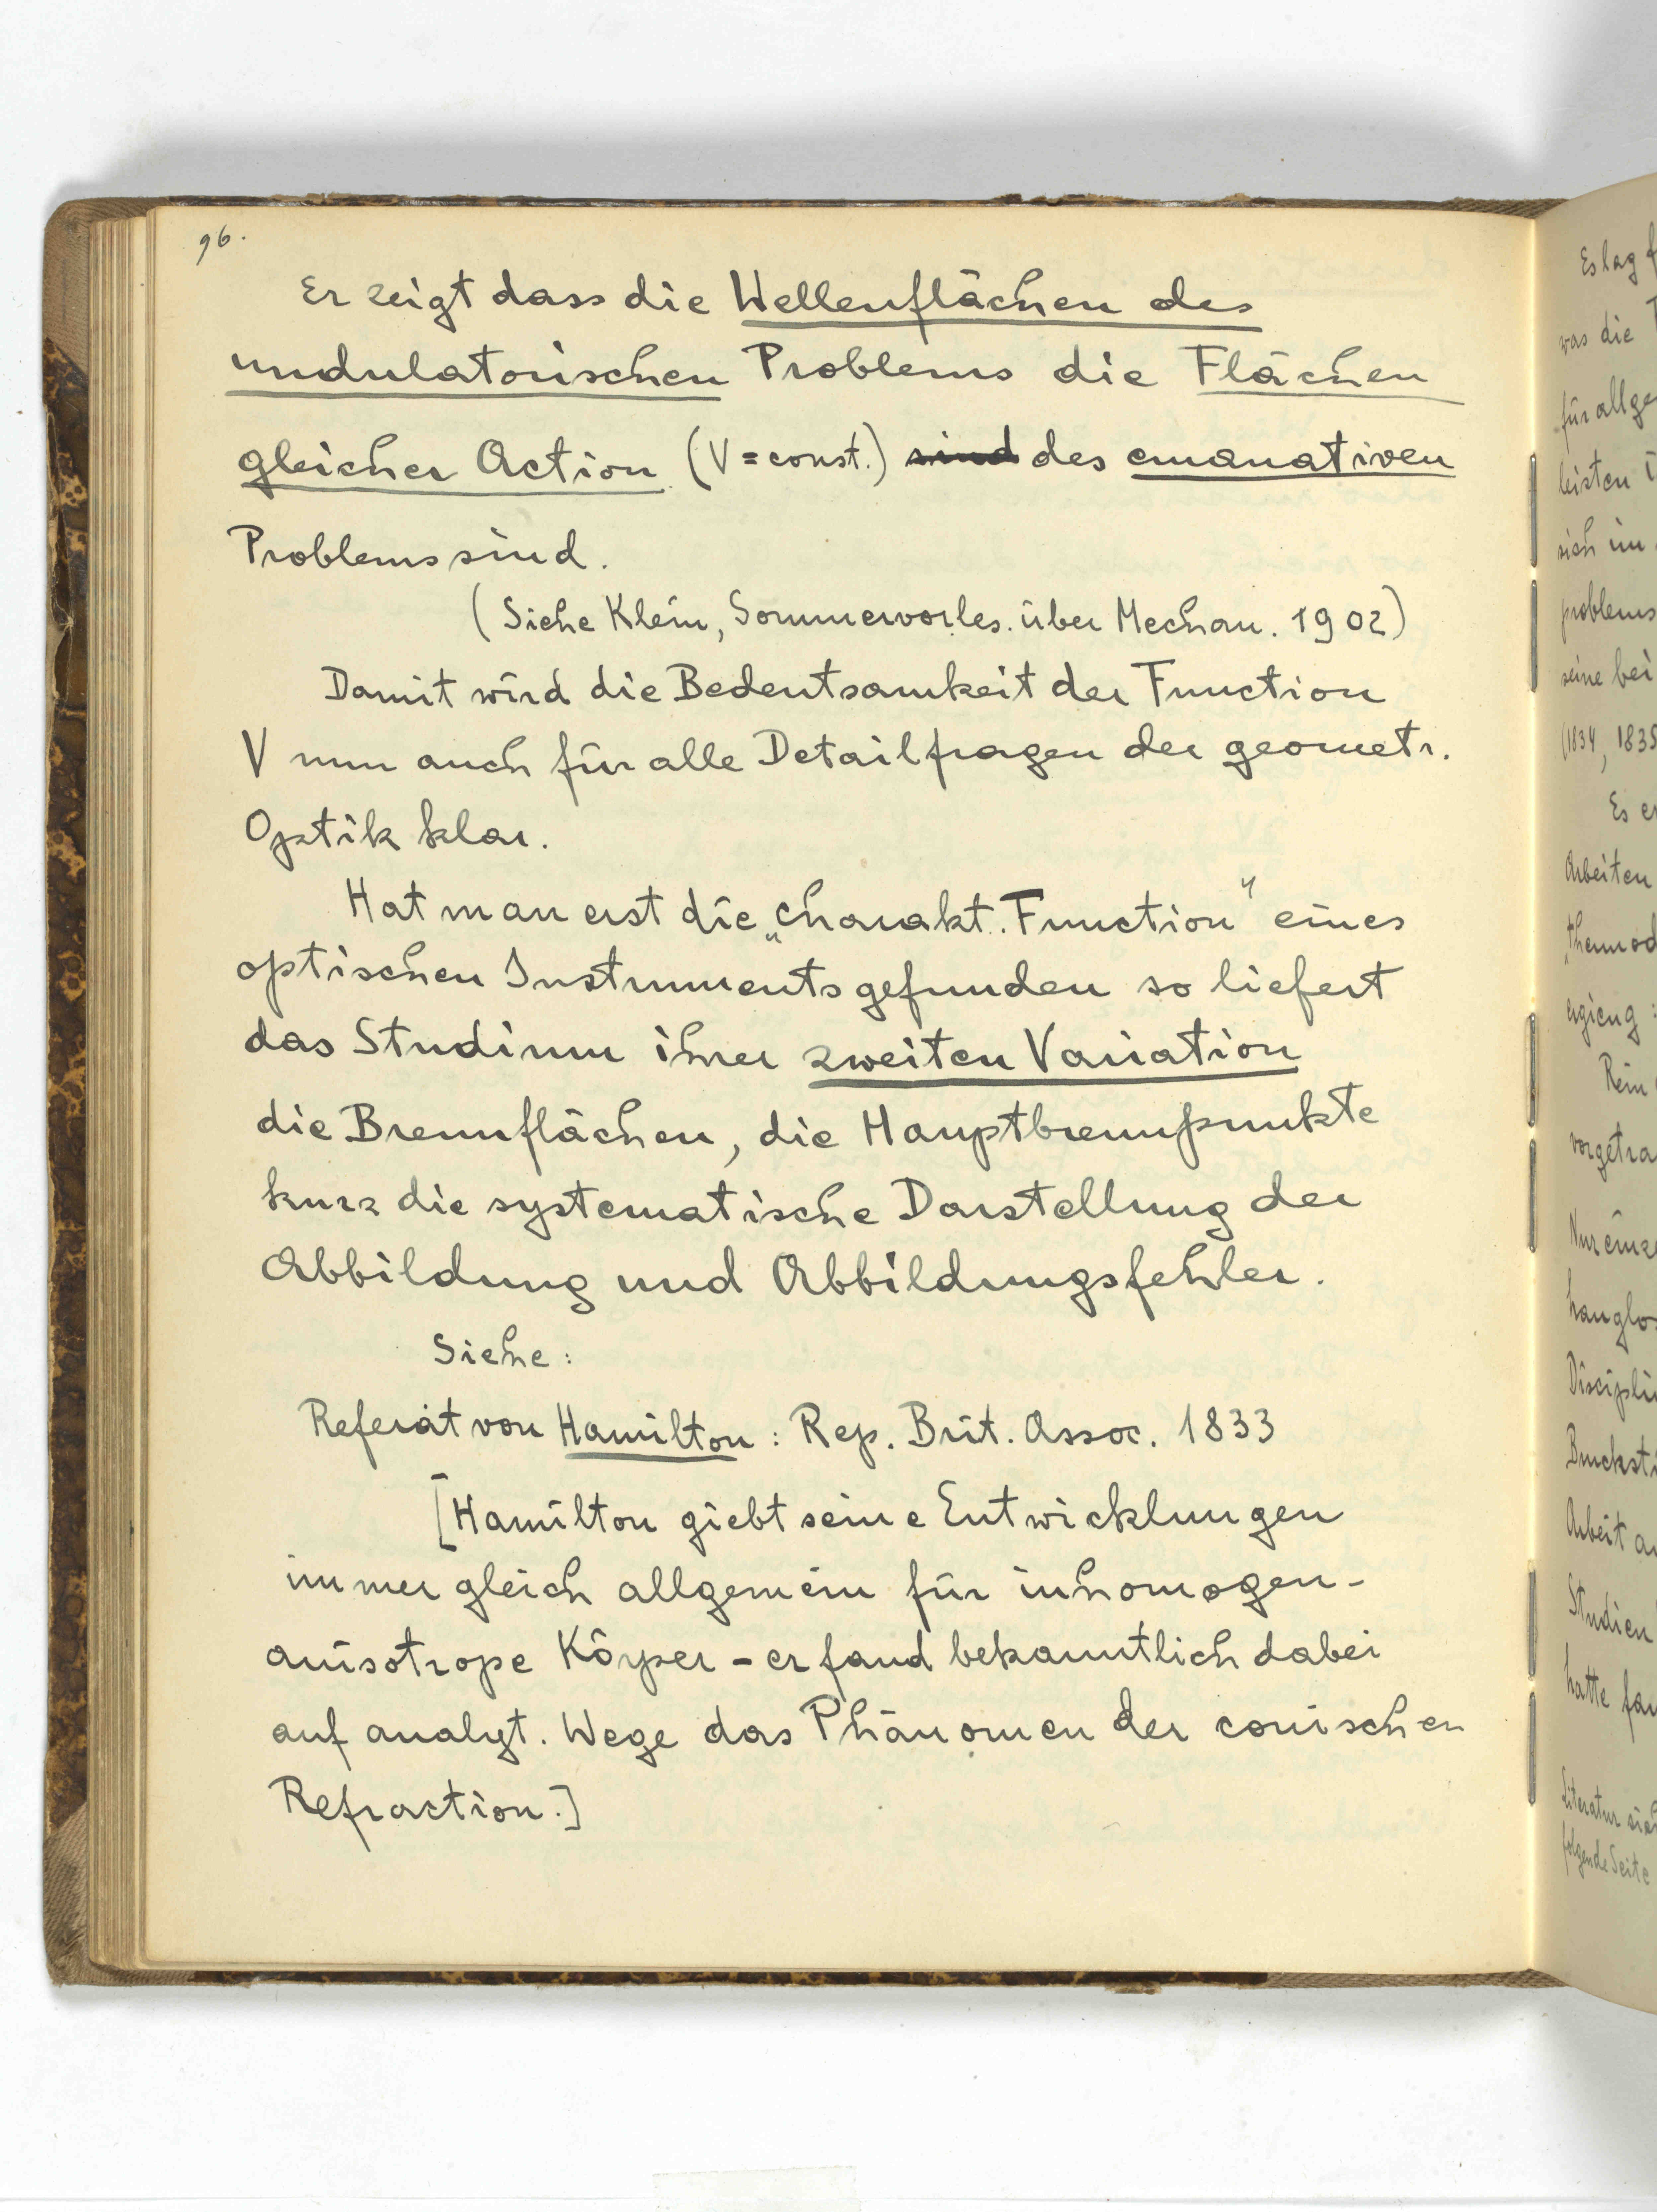 96.
Er zeigt dass die Wellenflächen des
undulatorischen Problems die Flächen
gleicher Action (V = const.) sind des emanativen
Problems sind.
(Siehe Klein, Sommervorles. über Mechan. 1902)
Damit wird die Bedeutsamkeit der Function
V nun auch für alle Detailfragen der geometr.
Optik klar.
Hat man erst die „charakt. Function" eines
optischen Instruments gefunden so liefert
das Studium ihrer zweiten Variation
die Brennflächen, die Hauptbrennpunkte
kurz die systematische Darstellung der
Abbildung und Abbildungsfehler.
Siehe:
Referat von Hamilton: Rep. Brit. Assoc. 1833
[Hamilton giebt seine Entwicklungen
immer gleich allgemein für inhomogen-
anisotrope Körper - er fand bekanntlich dabei
auf analyt. Wege das Phänomen der conischen
Refraction.]
Es lag
was die
für allge
leisten
sich im
problems
seine bei
(1834, 1835
Es
Arbeiten
ergieng
Rein
vorgetra
Nur einze
hanglos
Disciplin
Bruckst
Arbeit
Studien
hatte
Literatur
folgende Seite